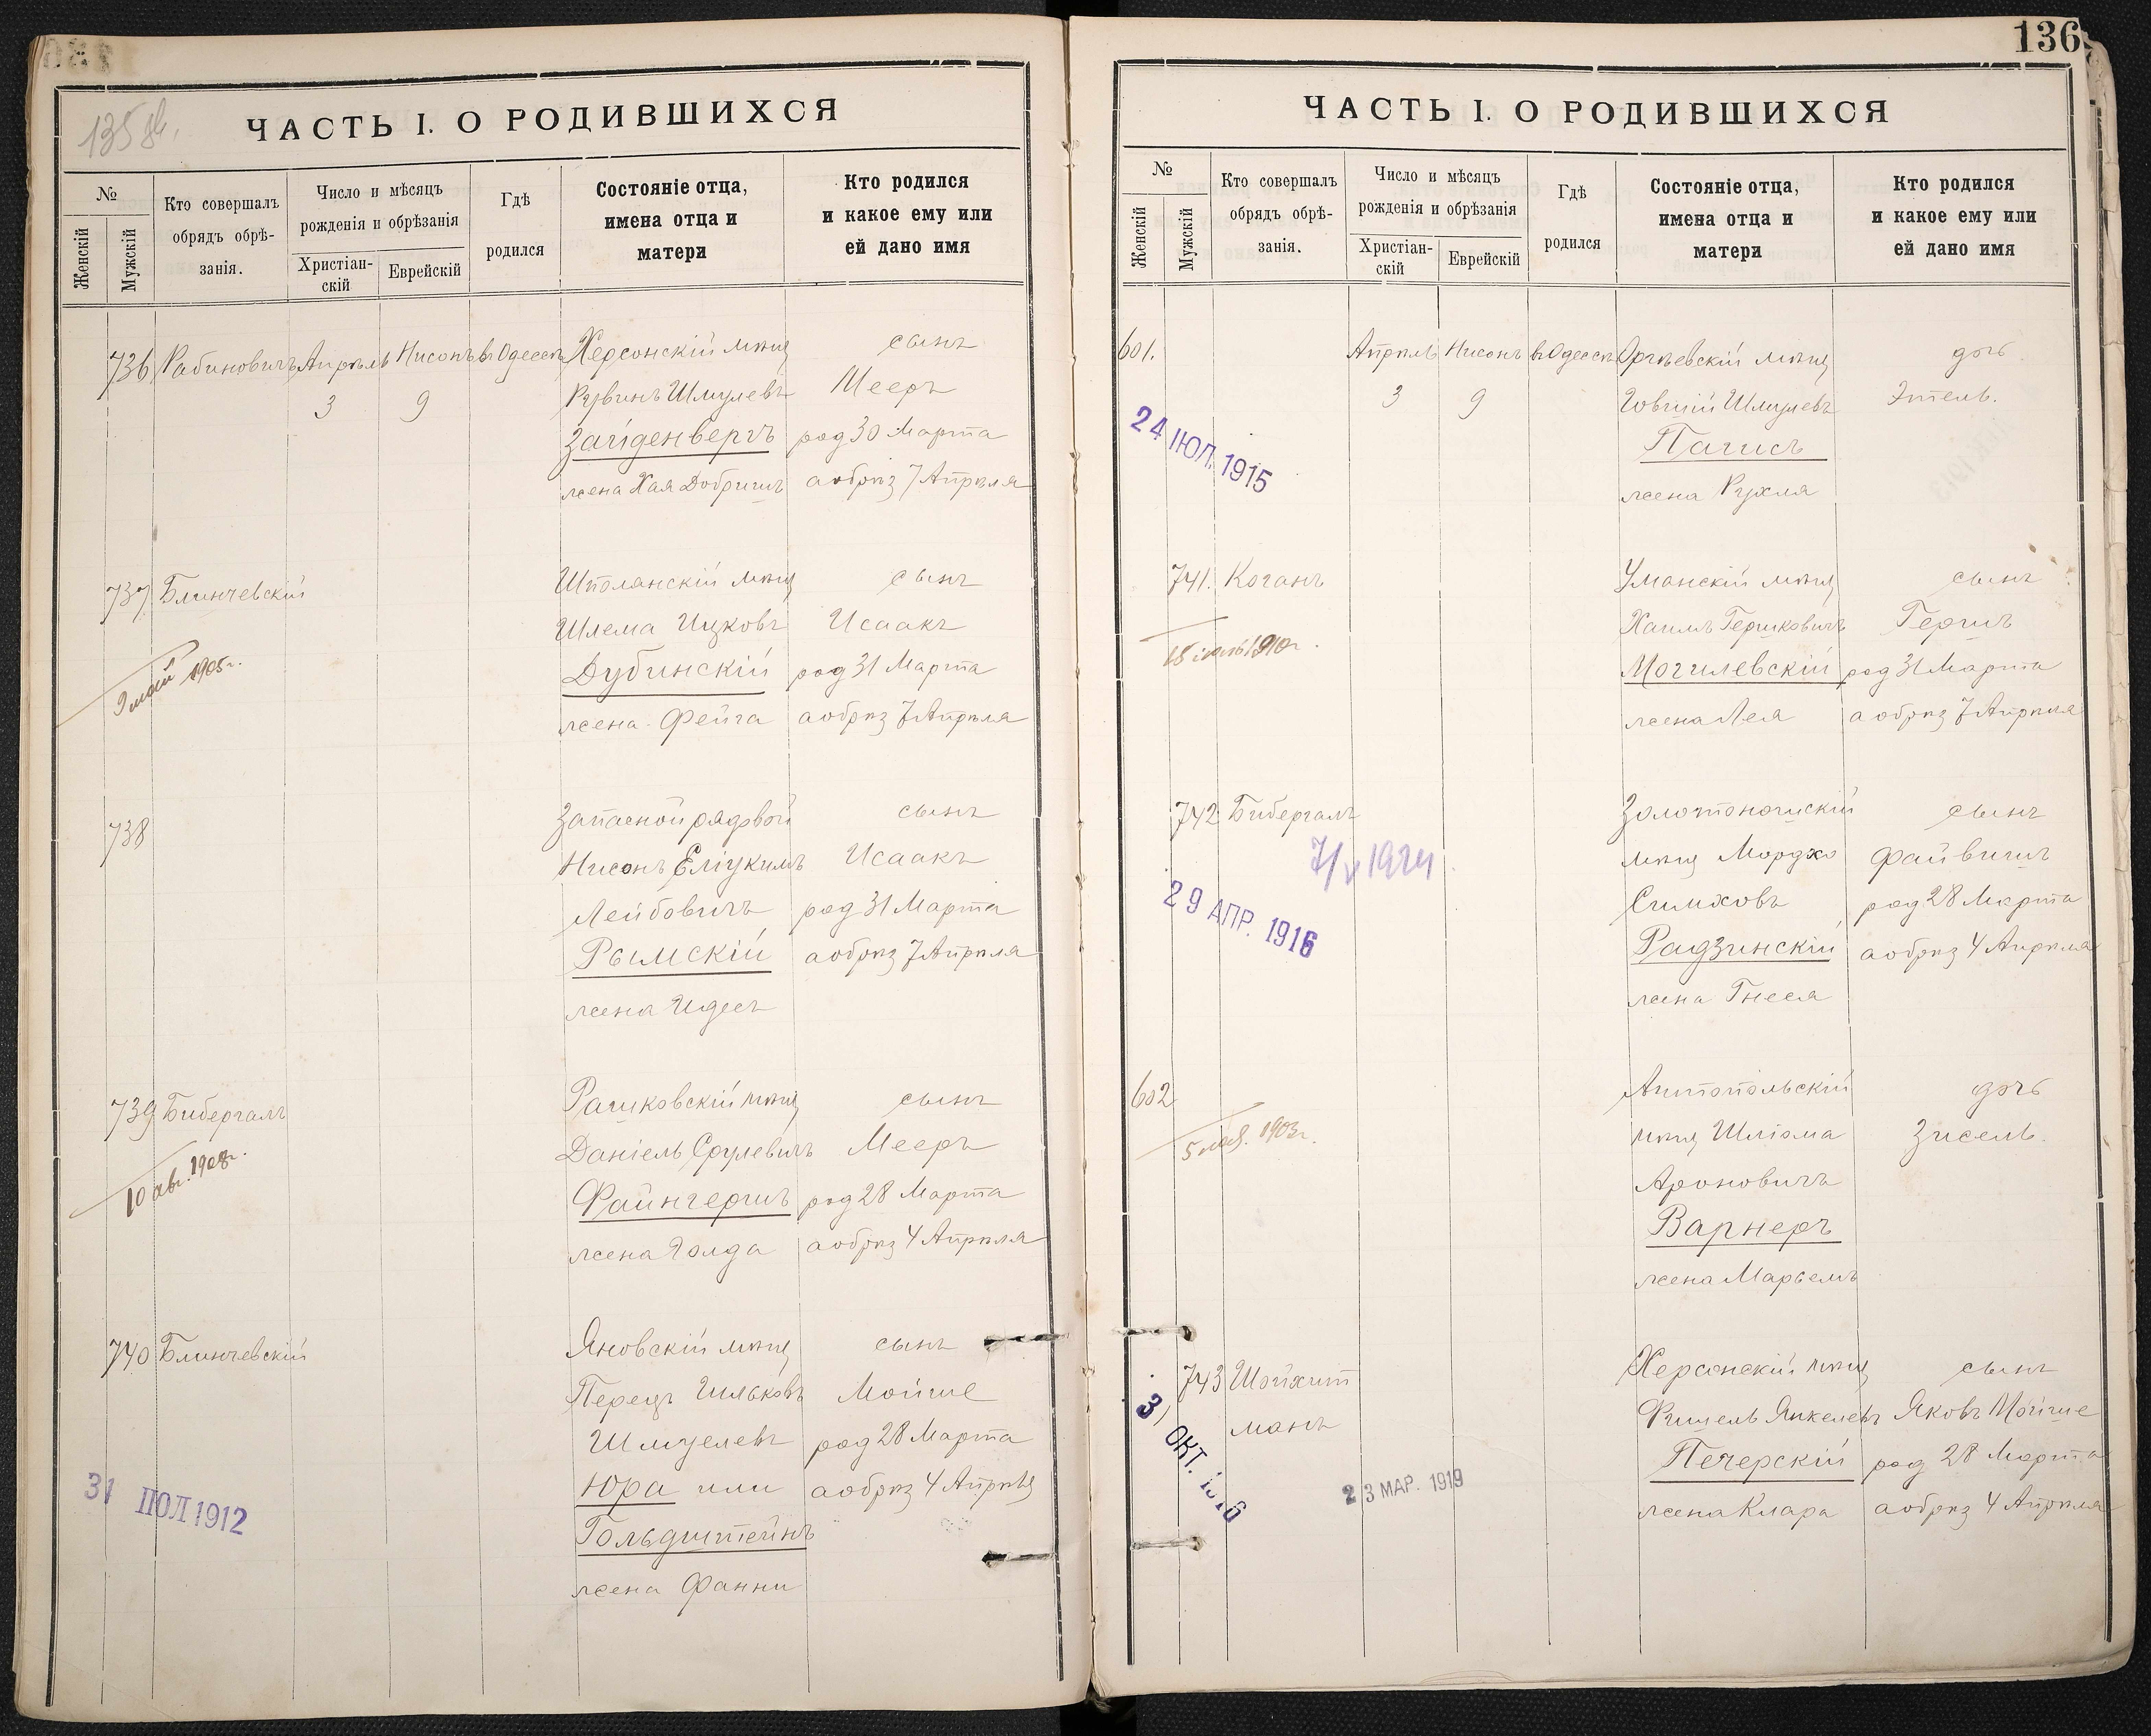 135 об.
ЧАСТЬ I. О РОДИВШИХСЯ
№
Женскій
Мужскій
Кто совершалъ
обрядъ обрѣ-
занія.
Число и мѣсяцъ
рожденія и обрѣзанія
Христіан-
скій
Еврейскій
Гдѣ
родился
Состояніе отца,
имена отца и
матери
Кто родился
и какое ему или
ей дано имя
736 Рабиновичъ Апрѣль Нисонъ въ Одессѣ Херсонскій мѣщ сынъ
3 9 Рувинъ Шмулевъ Мееръ
Зайденбергъ род 30 Марта
жена Хая Добришъ а обрѣз 7 Апрѣля
737 Блинчевскій Шполянскій мѣщ сынъ
Шлема Ицковъ Исаакъ
9 май 1905г. Дубинскій род 31 Марта
жена Фейга а обрѣз 7 Апрѣля
738 Запасной рядовой сынъ
Нисонъ Еліукимъ Исаакъ
Лейбовичъ род 31 Марта
Рымскій а обрѣз 7 Апрѣля
жена Идесъ
739 Бибергалъ Рашковскій мѣщ сынъ
Даніель Срулевичъ Мееръ
10 авг. 1908г. Файнгершъ род 28 Марта
жена Голда а обрѣз 4 Апрѣля
740 Блинчевскій Яновскій мѣщ сынъ
Перецъ Ильковъ Мойше
Шмулевъ род 28 Марта
31 ІЮЛ 1912 Юра или а обрѣз 4 Апрѣля
Гольдштейнъ
жена Фанни
136
ЧАСТЬ I. О РОДИВШИХСЯ
№
Женскій
Мужскій
Кто совершалъ
обрядъ обрѣ-
занія.
Число и мѣсяцъ
рожденія и обрѣзанія
Христіан-
скій
Еврейскій
Гдѣ
родился
Состояніе отца,
имена отца и
матери
Кто родился
и какое ему или
ей дано имя
601. Апрѣль Нисонъ въ Одессѣ Оргѣевскій мѣщ дочь
3 9 Шмулевъ Этель.
24 ІЮЛ. 1915 Пагисъ
жена Рухля
741. Коганъ Уманскій мѣщ сынъ
Хаимъ Гершковичъ Гершъ
15 1910г. Могилевскій род 31 Марта
жена Лея а обрѣз 7 Апрѣля
742 Бибергалъ Золотоношскій сынъ
7/V 1924 мѣщ Мордко Файвишъ
29 АПР. 1916 Симховъ род 28 Марта
Радзинскій а обрѣз 4 Апрѣля
жена Гнеся
602 Антопольскій дочь
5 1903г. мѣщ Шліома Зисель.
Ароновичъ
Варнеръ
жена Марьемъ
743 Шойхит Херсонскій мѣщ сынъ
манъ Фишель Янкелевъ Яковъ Мойше
31 ОКТ. 1916 Печерскій род 28 Марта
23 МАР. 1919 жена Клара а обрѣз 4 Апрѣля